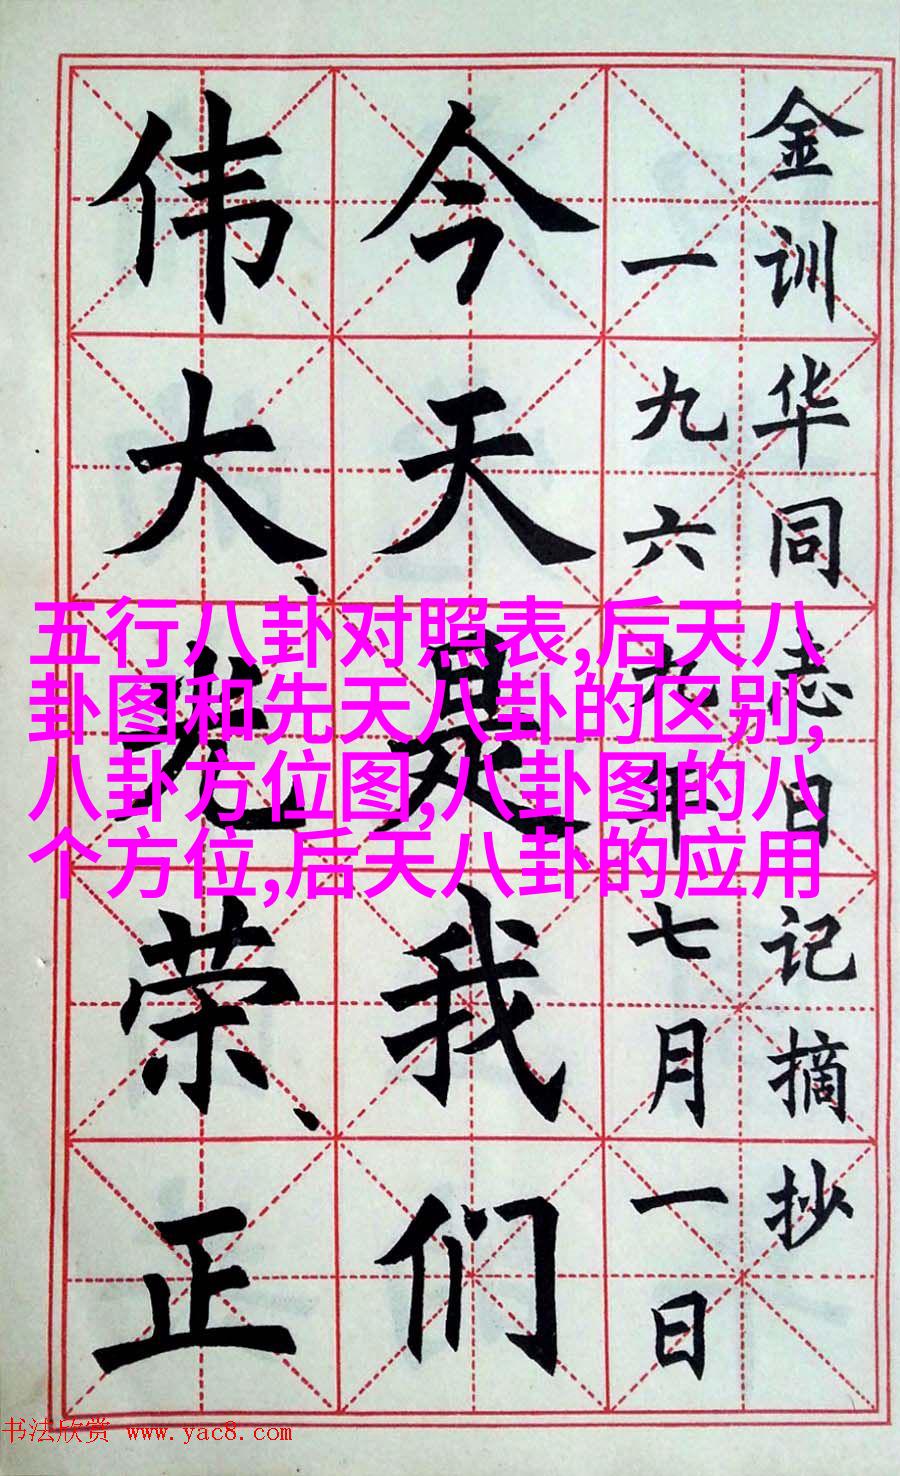 金训华同志日记摘抄
一九六九年七月一日
今天是我们
伟大、光荣、正
五行八卦对照表,后天八
卦图和先天八卦的区别,
八卦方位图,八卦图的八
个方位,后天八卦的应用
书法欣赏 www.yac8.com